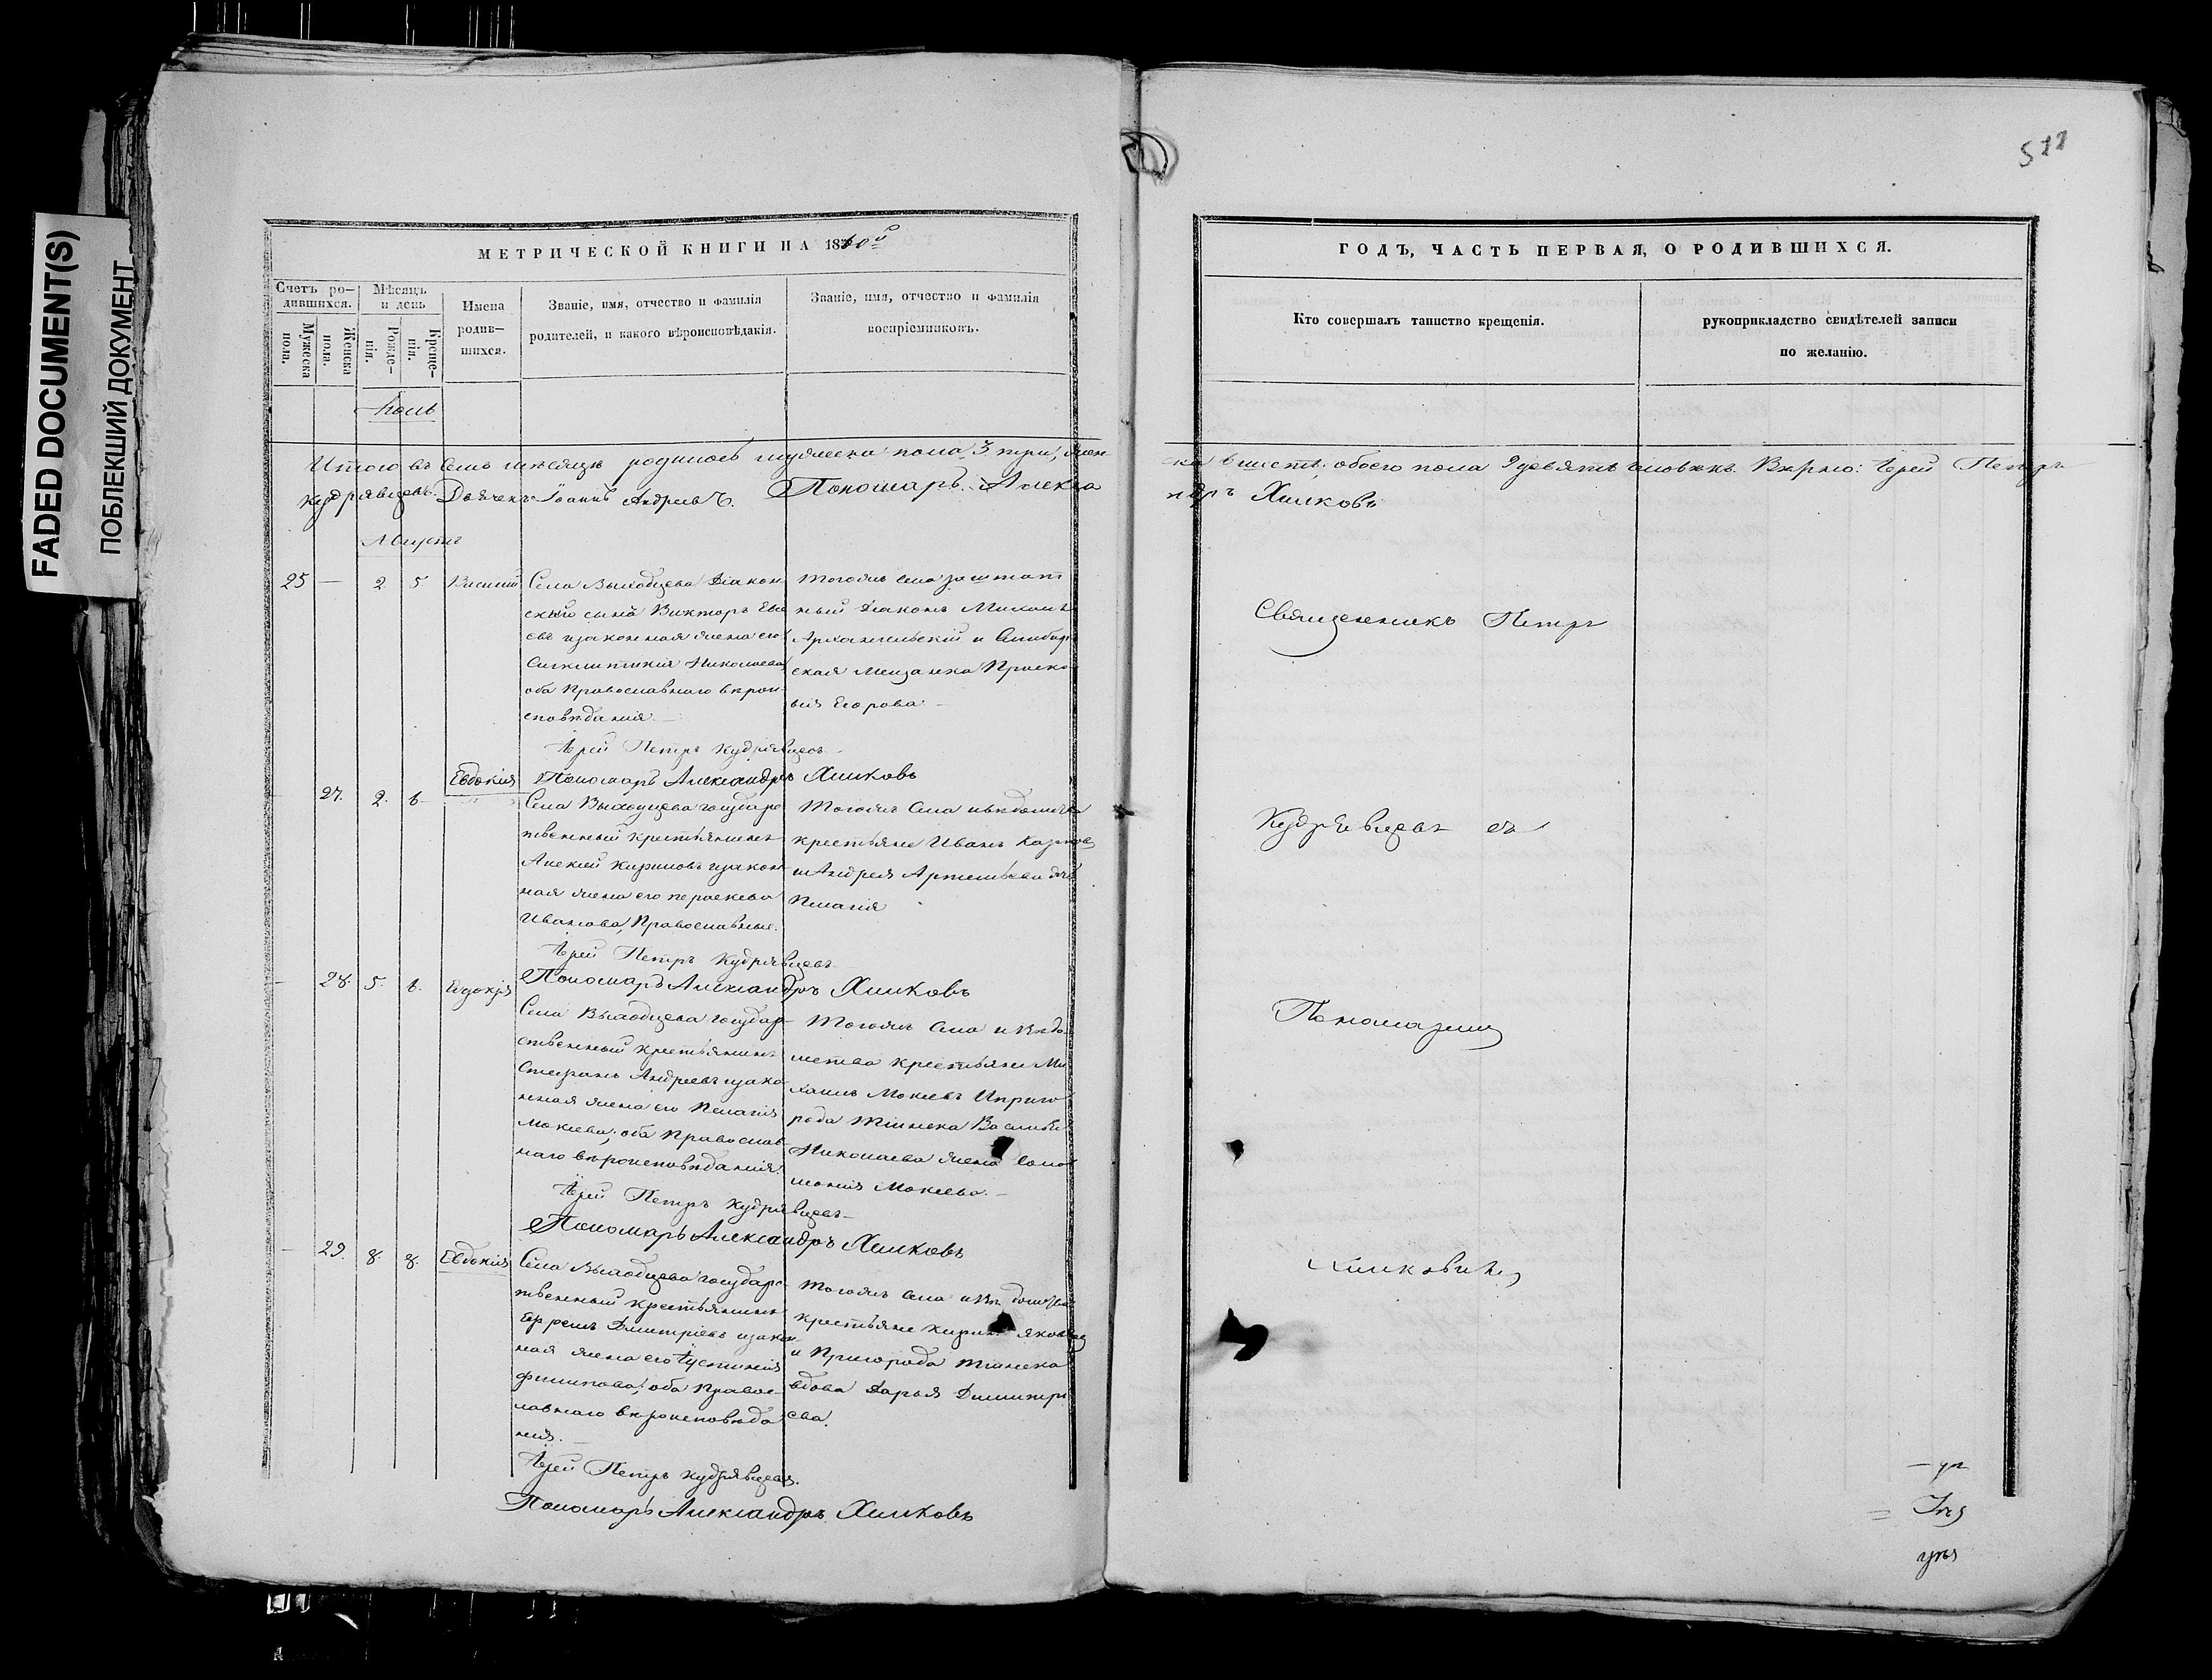 FADED DOCUMENT(S)
ПОБЛЕКШИЙ ДОКУМЕНТ
МЕТРИЧЕСКОЙ КНИГИ НА 18
Счетъ ро-
дившихся.
Мужеска
пола.
Женска
пола.
Мѣсяцъ
и день
Рожде-
нія.
Креще-
нія.
Имена
родив-
шихся.
Званіе, имя, отчество и фамилія
родителей, и какого вѣроисповѣданія.
Званіе, имя, отчество и фамилія
воспріемниковъ.
Итого въ семъ мѣсяцѣ родилось мужеска пола 3 три, жен
Кудрявцевъ. Дьячекъ Іоаннъ Андреевъ. Пономарь Алекса
Августъ
25 — 2 5 Василій
Села Выходцева Діакон
скій сынъ Викторъ
евъ изаконная жена его
Николаева
оба Православнаго вѣрои
сповѣданія.
Тогожъ села заштат
ный Діаконъ Михаилъ
Архангельскій и Симбир
ская Мещанка Праско
вья Егорова
Іерей Петръ Кудрявцевъ
Пономарь Александръ Хилковъ
— 27. 2. 6. Евдокія
Села Выходцева государс
твенный крестьянинъ
Алексѣй Кириловъ изакон
ная жена его параскева
Иванова, Православные.
Тогожъ Села
крестьяне Иванъ
и Андрея Артемьева доч
Пелагія
Іерей Петръ Кудрявцевъ
Пономарь Александръ Хилковъ
— 28. 5. 6. Евдокія
Села Выходцева государ
ственный крестьянинъ
Стефанъ Андреевъ изако
нная жена его Пелагія
Мокіева; оба Православ
наго вѣроисповѣданія.
Тогожъ Села и вѣдо
мства крестьяне Ми
хаилъ Мокіевъ Ипріго
рода Тіинска Василья
Николаева жена Соло
монія Мокіева.
Іерей Петръ Кудрявцевъ
Пономарь Александръ Хилковъ
— 29. 8. 8. Евдокія
Села Выходцева государс
твенный крестьянинъ
Ефремъ Димитріевъ изакон
ная жена его Іустинія
Филипова; оба Правос
лавнаго вѣроисповѣда
нія.
Тогожъ Села
крестьяне Кирилъ Яковлев
и Пригорода Тіинска
вдова Дарья Димитрі
ева.
Іерей Петръ Кудрявцевъ.
Пономарь Александръ Хилковъ
ГОДЪ, ЧАСТЬ ПЕРВАЯ, О РОДИВШИХСЯ.
Кто совершалъ таинство крещенія.
рукоприкладство свидѣтелей записи
по желанію.
ска 6 шесть; обоего пола 9 девять человѣкъ. Вѣрно: Іерей Петръ
ндръ Хилковъ
Священникъ Петръ
Кудрявцевъ съ
Пономаремъ
Хилковымъ